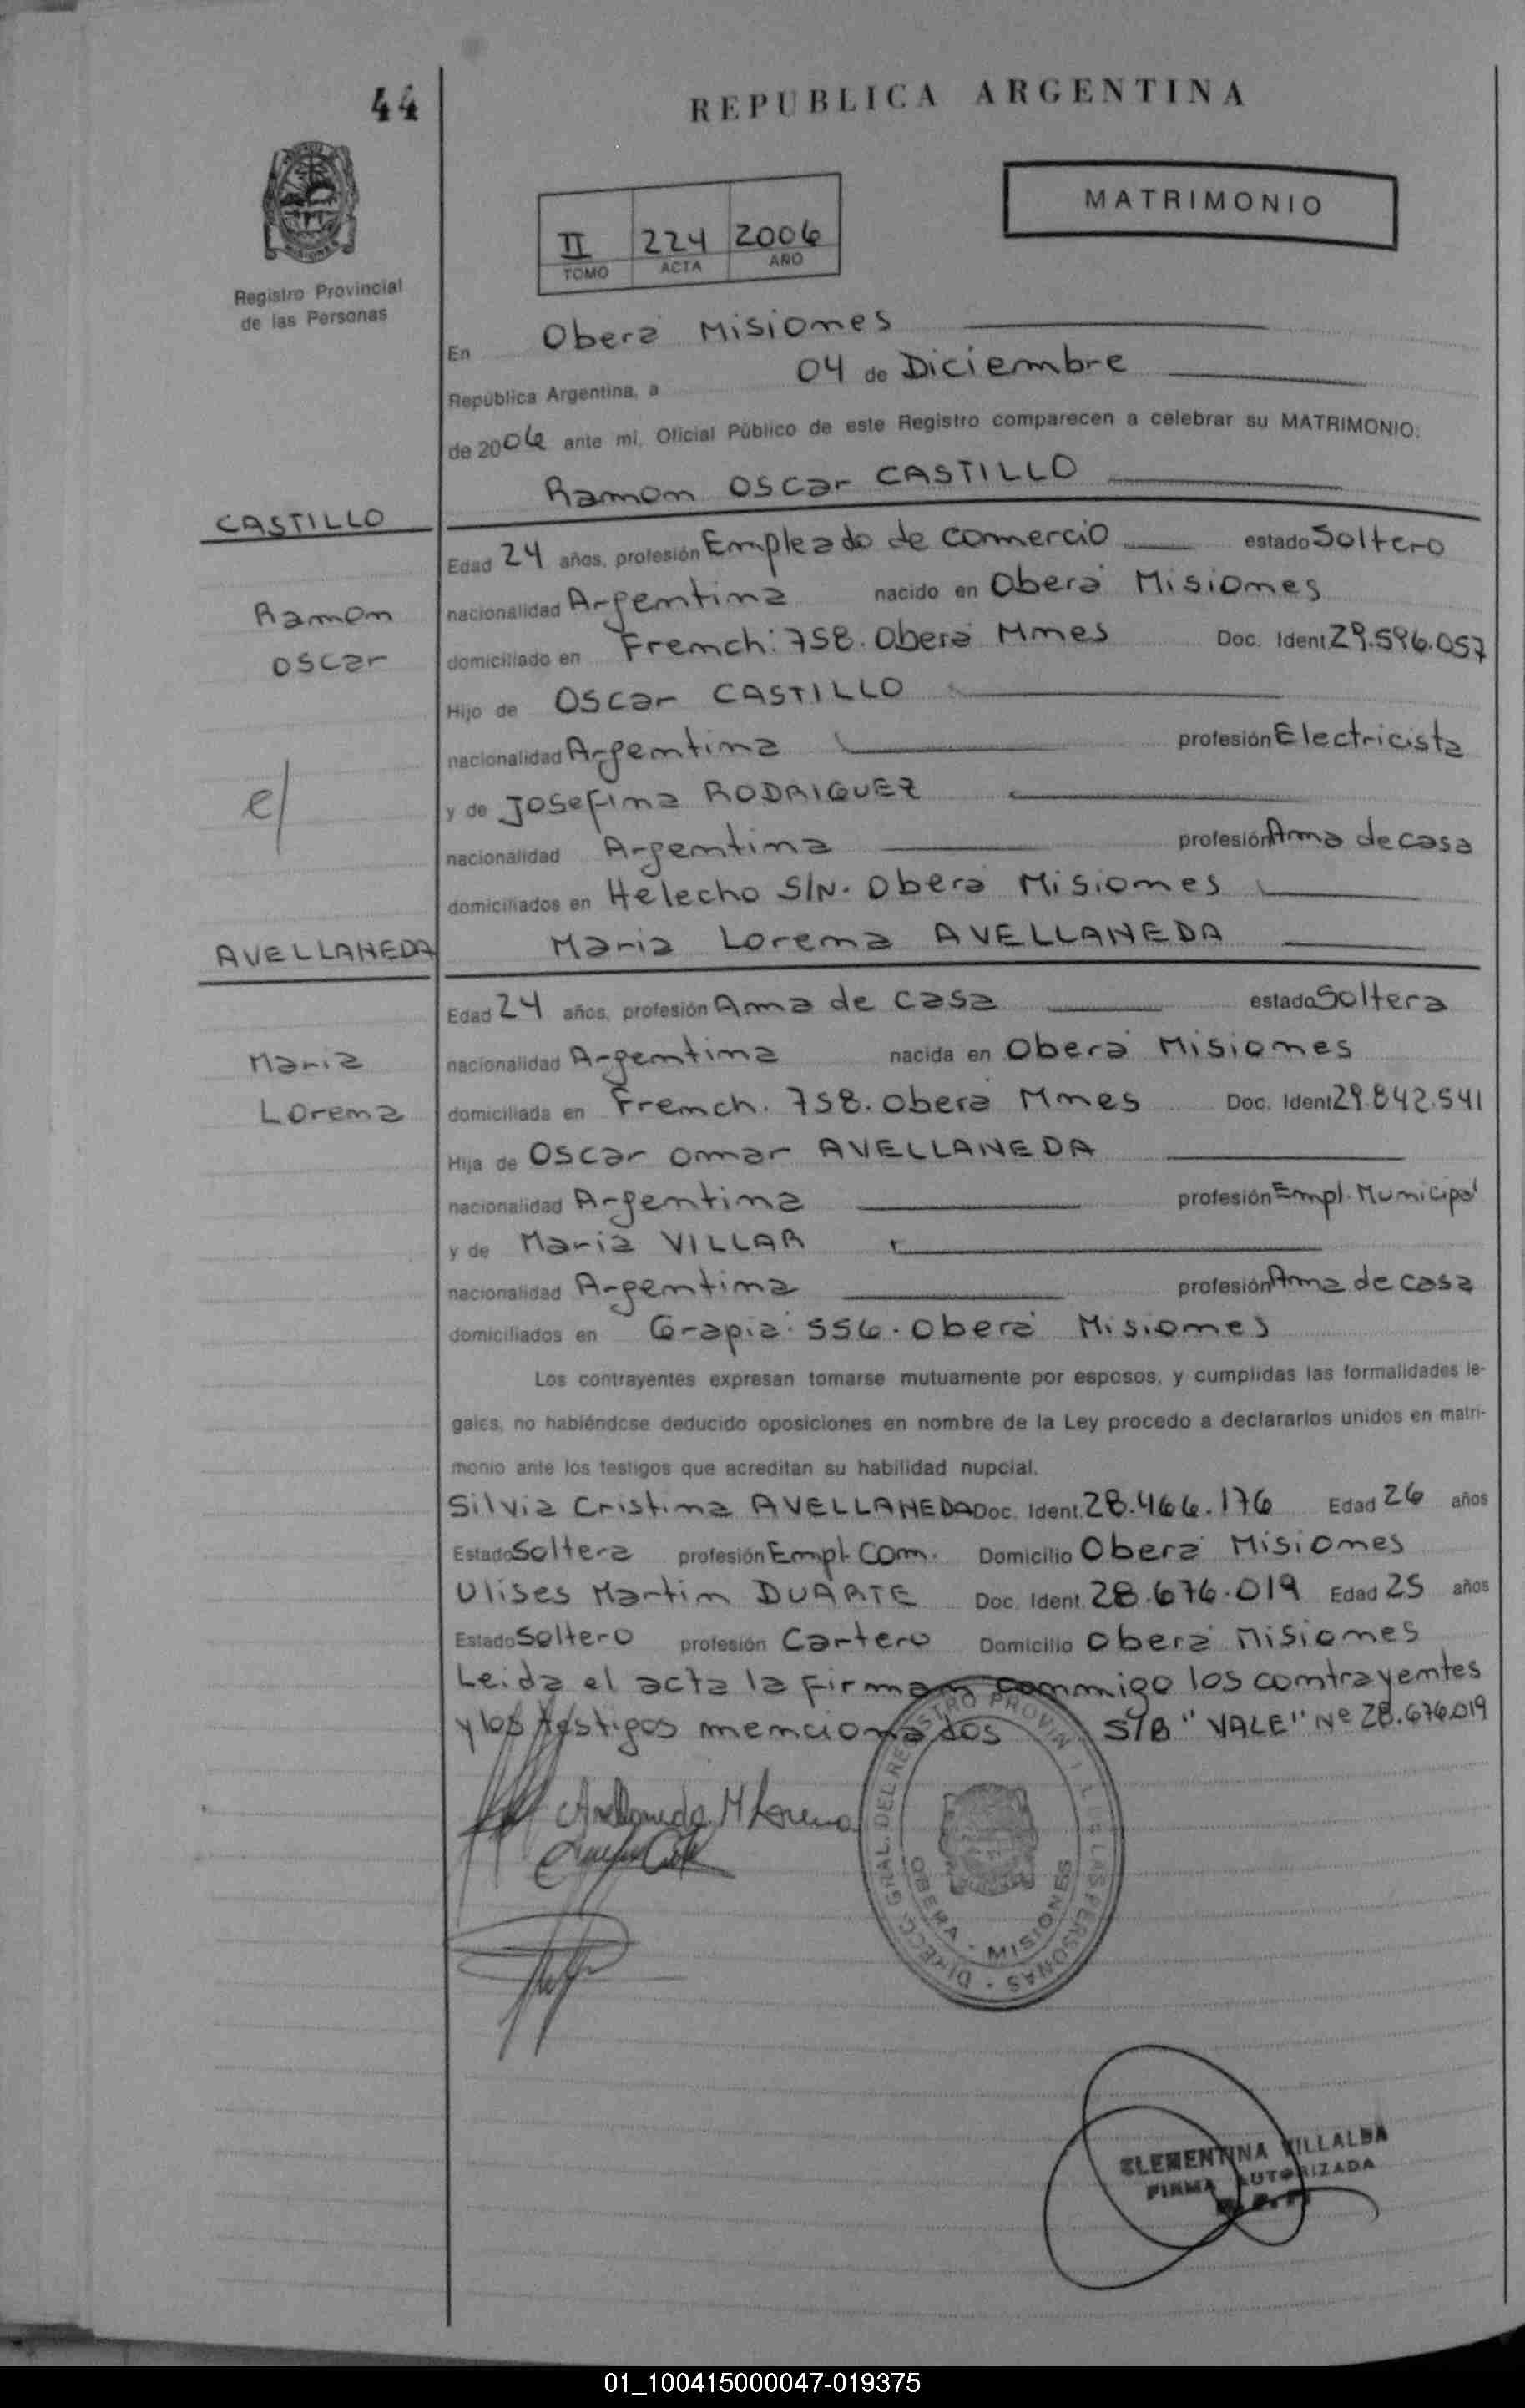 44
REPUBLICA ARGENTINA
MATRIMONIO
II 224 2006
TOMO ACTA AÑO
Registro Provincial
de las Personas
En Oberá Misiones
República Argentina, a 04 de Diciembre
de 2006 ante mí, Oficial Público de este Registro comparecen a celebrar su MATRIMONIO:
Ramon Oscar CASTILLO
CASTILLO
Edad 24 años, profesión Empleado de comercio estado Soltero
Ramon
nacionalidad Argentina nacido en Oberá Misiones
Oscar
domiciliado en French: 758. Oberá Mnes Doc. Ident 29.596.057
Hijo de Oscar CASTILLO
nacionalidad Argentina profesión Electricista
e/
y de Josefina RODRIGUEZ
nacionalidad Argentina profesión Ama de casa
domiciliados en Helecho S/N. Oberá Misiones
Maria Lorena AVELLANEDA
AVELLANEDA
Edad 24 años, profesión Ama de casa estado Soltera
Maria
nacionalidad Argentina nacida en Oberá Misiones
Lorena
domiciliada en French. 758. Oberá Mnes Doc. Ident 29.842.541
Hija de Oscar Omar AVELLANEDA
nacionalidad Argentina profesión Empl. Municipal
y de Maria VILLAR
nacionalidad Argentina profesión Ama de casa
domiciliados en Grapia: 556. Oberá Misiones
Los contrayentes expresan tomarse mutuamente por esposos, y cumplidas las formalidades le-
gales, no habiéndose deducido oposiciones en nombre de la Ley procedo a declararlos unidos en matri-
monio ante los testigos que acreditan su habilidad nupcial.
Silvia Cristina AVELLANEDA Doc. Ident. 28.466.176 Edad 26 años
Estado Soltera profesión Empl. Com. Domicilio Oberá Misiones
Ulises Martin DUARTE Doc. Ident. 28.676.019 Edad 25 años
Estado Soltero profesión Cartero Domicilio Oberá Misiones
Leida el acta la firman conmigo los contrayentes
y los testigos mencionados S/B "VALE" Nº 28.676.019
Avellaneda M Lorena
DIRECC. GRAL. DEL REGISTRO PROVINCIAL DE LAS PERSONAS
OBERA - MISIONES
CLEMENTINA VILLALBA
FIRMA AUTORIZADA
01_100415000047-019375